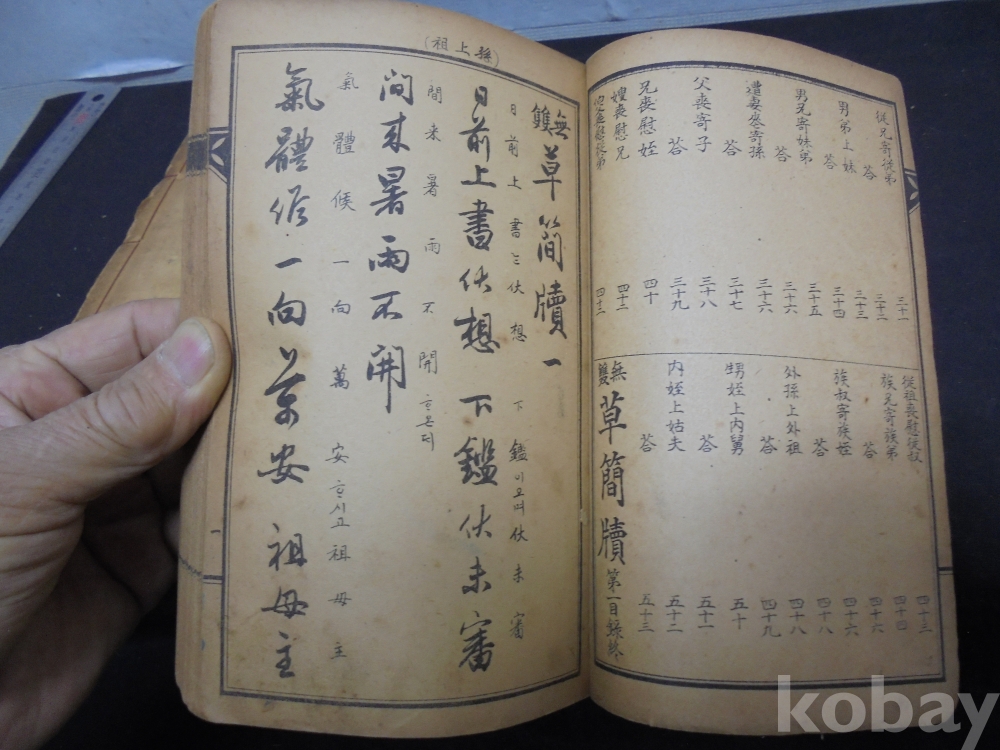 從兄寄從弟 三十一
答 三十二
男弟上妹 三十三
答 三十四
男兄寄妹弟 三十五
答 三十六
遭妻喪寄孫 三十六
答 三十七
父喪寄子 三十八
答 三十九
兄喪慰姪 四十
嫂喪慰兄 四十二
慰從弟 四十三
從祖喪慰從叔 四十三
族兄寄族弟 四十四
答 四十六
族叔寄族姪 四十六
答 四十八
外孫上外祖 四十八
答 四十九
甥姪上內舅 五十
答 五十一
內姪上姑夫 五十二
答 五十三
無雙草簡牘 第一目錄終
(孫上祖)
無雙草簡牘 一
日前上書는伏想 下鑑이오며伏未審
日前上書伏想 下鑑伏未審
間來暑雨不開하온데
间来暑雨不開
氣體候一向萬安하시고祖母主
氣體候一向萬安 祖母主
kobay